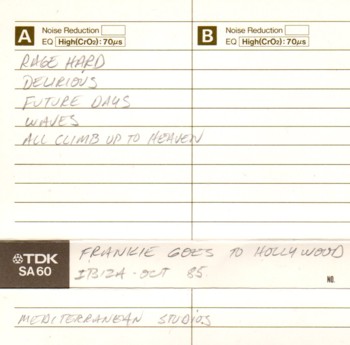 A Noise Reduction
EQ High(CrO2): 70μs
B Noise Reduction
EQ High(CrO2): 70μs
RAGE HARD
DELIRIOUS
FUTURE DAYS
WAVES
ALL CLIMB UP TO HEAVEN
TDK
SA60
FRANKIE GOES TO HOLLYWOOD
IBIZA - OCT 85
NO.
MEDITERRANEAN STUDIOS